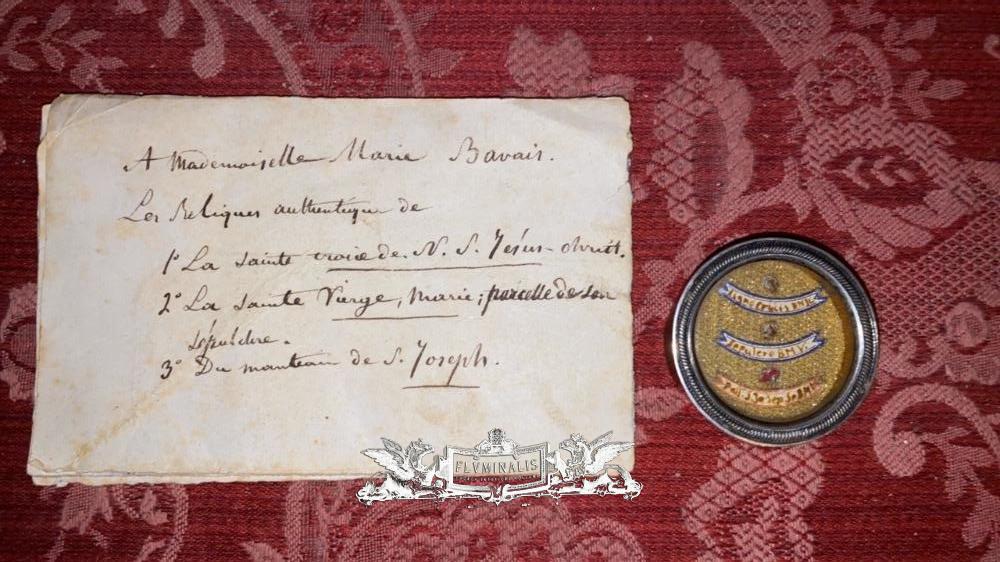 A Mademoiselle Marie Bavais.
Les Reliques authentique de
1º La sainte croix de N. S. Jésus-christ.
2º La sainte Vierge, Marie; parcelle de son
sépulchre.
3º Du manteau de S. Joseph.
FLVMINALIS
Sepulcro B.M.V.